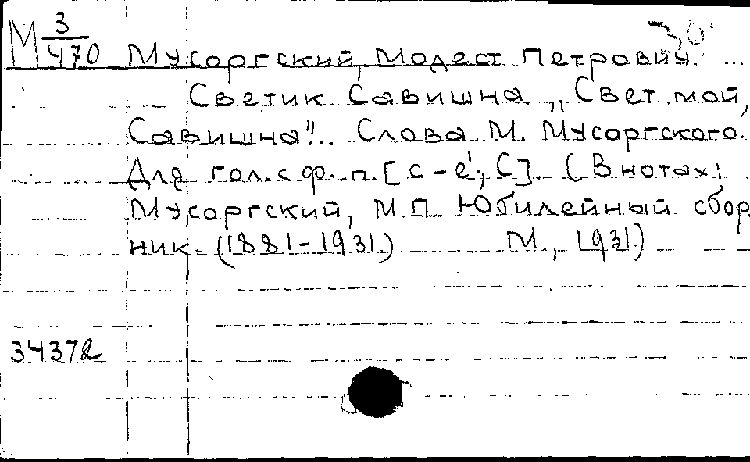 М 3/470 Мусоргский, Модест Петрович.
Светик Савишна „Свет мой,
Савишна".. Слова М. Мусоргского.
Для гол. с ф.-п. [c - e', C]. (В нотах:
Мусоргский, М.П. Юбилейный сбор
ник. (1881-1931.) М., 1931.)
34372